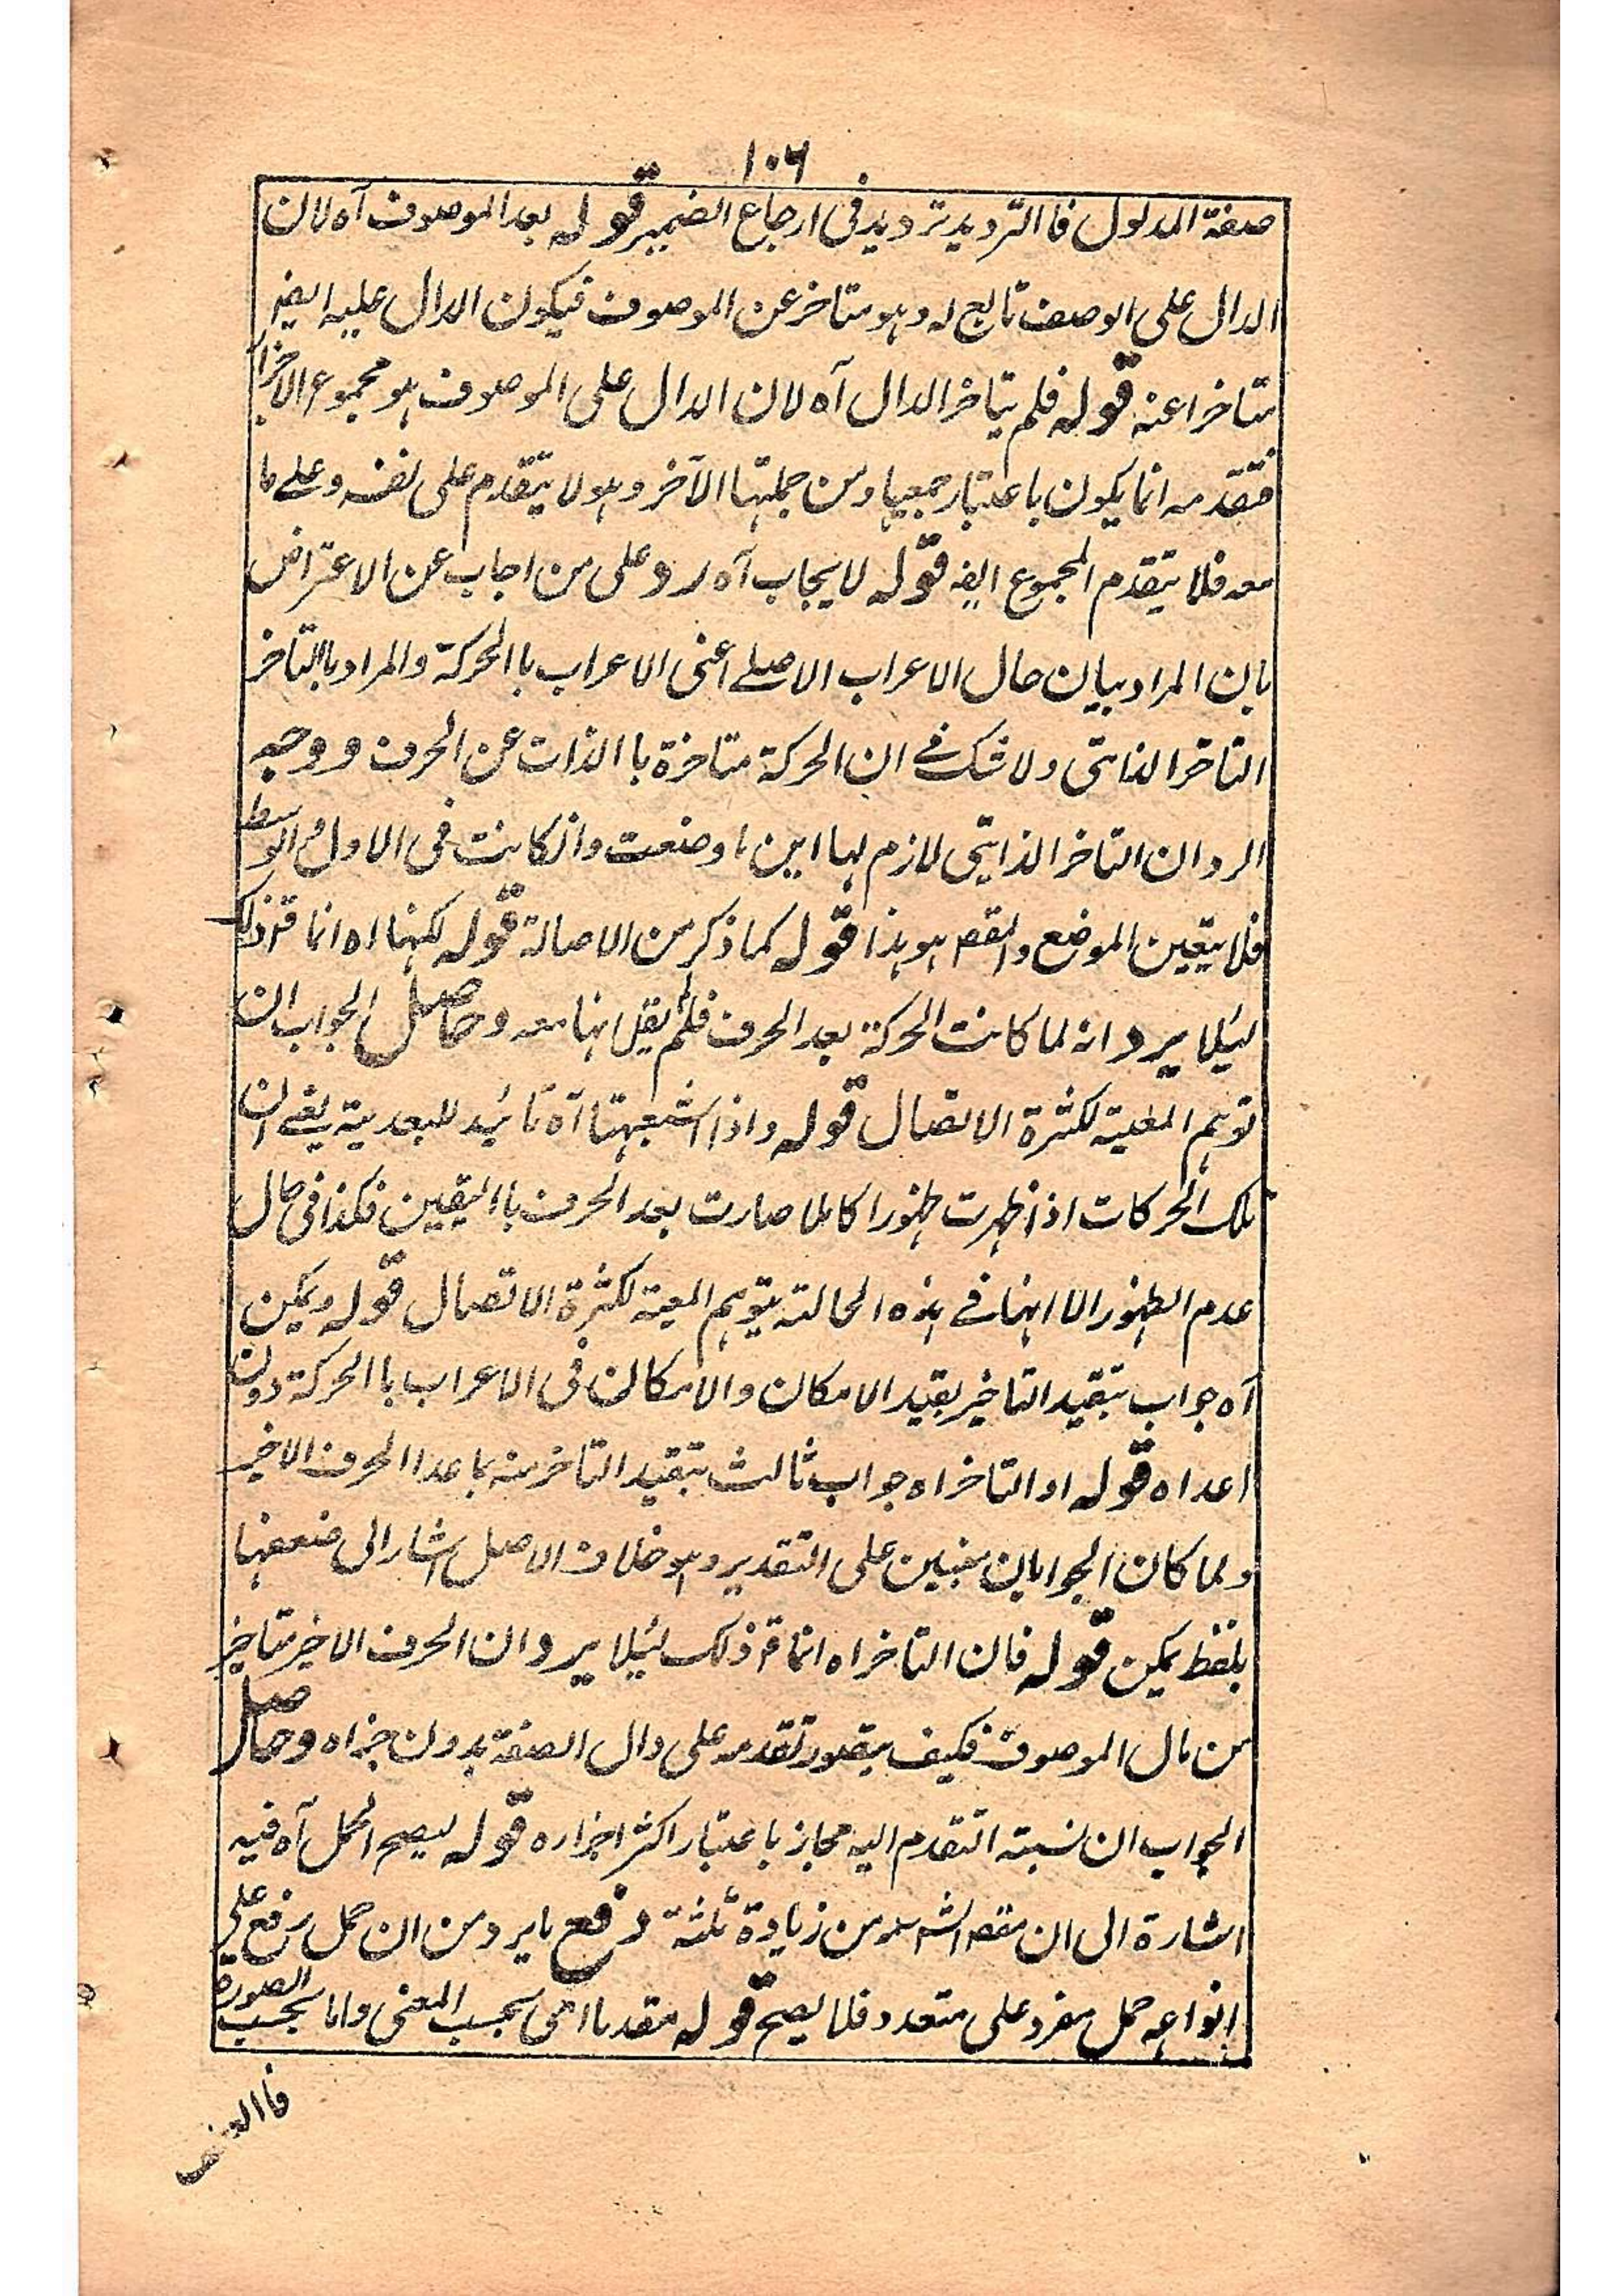 ١٠٦
صفة المدلول فاالترديد ترديد فى ارجاع الضمير قوله بعد الموصوف آه لان
الدال على الوصف تابع له وهو متاخر عن الموصوف فيكون الدال عليه ايضر
متاخرا عنه قوله فلم يتاخر الدال آه لان الدال على الموصوف هو مجموع الاجزا
فتقدمه انما يكون باعتبار جمعيها ومن جملتها الآخر وهو لا يتقدم على نفسه وعلے ما
معه فلا يتقدم المجموع ايضه قوله لا يجاب آه رد وعلى من اجاب عن الاعتراض
بان المراد بيان حال الاعراب الاصلے اعنى الاعراب باالحركة والمراد باالتاخر
التاخر الذاتى ولا شك فے ان الحركة متاخرة باالذات عن الحرف ووجه
الرد ان التاخر الذاتى لازم لها اين ما وضعت وانكانت فى الاول والوسط
فلا يتعين الموضع والمقصه هو هذا قوله كما ذكر من الاصالة قوله لكنها اه انما قر ذلك
ليئلا يرد انه لما كانت الحركة بعد الحرف فلم يقل انها معه وحاصل الجواب ان
توهم المعية لكثرة الاتصال قوله واذا اشبعتها آه تائيد للبعدية يعنے ان
تلك الحركات اذا ظهرت ظهورا كاملا صارت بعد الحرف بااليقين فكذا فى حال
عدم الظهور الا انها فے هذه الحالة يتوهم المعية لكثرة الاتصال قوله ويمكن
آه جواب بتقيد التاخير بقيد الامكان والامكان فى الاعراب باالحركة دون
اعداه قوله او التاخر اه جواب ثالث بتقيد التاخر منه بما عدا الحرف الاخير
ولما كان الجوابان مبنيين على التقدير وهو خلاف الاصل اشار الى ضعفها
بلفظ يمكن قوله فان التاخر اه انما قر ذلك ليئلا يرد ان الحرف الاخير متاخر
من مال الموصوف فكيف يتصور تقدمه على دال الصفة بدون جزاه وحاصل
الجواب ان نسبته التقدم اليه مجاز باعتبار اكثر اجزاره قوله ليصح الحمل آه فيه
اشارة الى ان مقصه الشه من زيادة ثلثة دفع ما يرد من ان حمل رفع علے
انواعه حمل مفرد على متعدد فلا يصح قوله مقدما اى بحسب المعنى واما بحسب الصورة